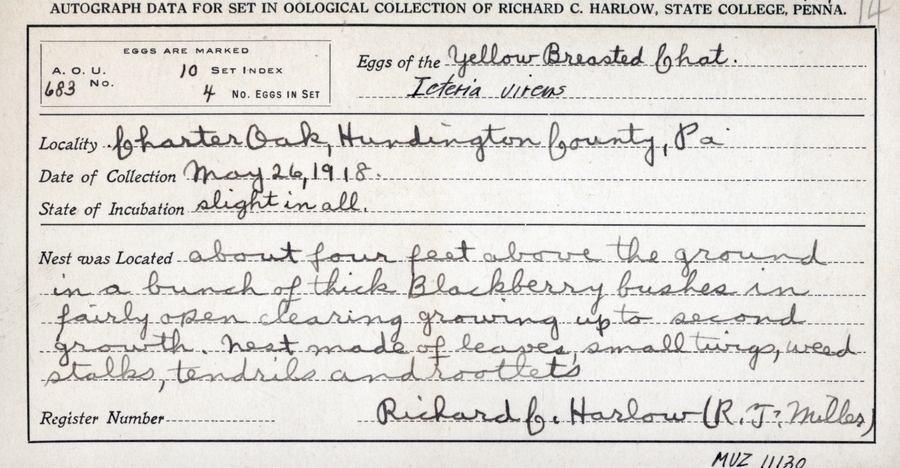 AUTOGRAPH DATA FOR SET IN OOLOGICAL COLLECTION OF RICHARD C. HARLOW, STATE COLLEGE, PENNA.
14
EGGS ARE MARKED
A. O. U. No. 683
10 SET INDEX
4 NO. EGGS IN SET
Eggs of the Yellow Breasted Chat.
Icteria virens
Locality Charter Oak, Hundington County, Pa
Date of Collection May 26, 1918.
State of Incubation slight in all.
Nest was Located about four feet above the ground
in a bunch of thick Blackberry bushes in
fairly open clearing growing up to second
growth. Nest made of leaves, small twigs, weed
stalks, tendrils and rootlets
Register Number
Richard C. Harlow (R. F. Miller)
MUZ 11130